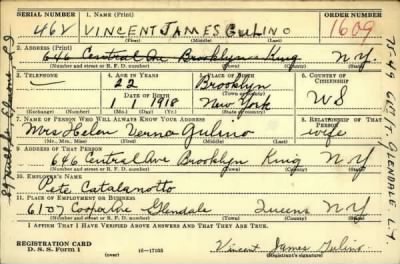 SERIAL NUMBER 1. NAME (Print) ORDER NUMBER
462 VINCENT JAMES GULINO 1609
(First) (Middle) (Last)
2. ADDRESS (Print)
646 Central Ave Brooklyn Kings N.Y.
(Number and street or R. F. D. number) (Town) (County) (State)
3. TELEPHONE 4. AGE IN YEARS 5. PLACE OF BIRTH 6. COUNTRY OF CITIZENSHIP
22 Brooklyn
DATE OF BIRTH (Town or county)
1 1 1918 New York US
(Exchange) (Number) (Mo.) (Day) (Yr.) (State or country)
7. NAME OF PERSON WHO WILL ALWAYS KNOW YOUR ADDRESS 8. RELATIONSHIP OF THAT PERSON
Mrs Helen Verna Gulino wife
(Mr., Mrs., Miss) (First) (Middle) (Last)
9. ADDRESS OF THAT PERSON
646 Central Ave Brooklyn King N Y
(Number and street or R. F. D. number) (Town) (County) (State)
10. EMPLOYER'S NAME
Pete Catalanotto
11. PLACE OF EMPLOYMENT OR BUSINESS
6107 Cooper Ave Glendale Queens N.Y.
(Number and street or R. F. D. number) (Town) (County) (State)
I AFFIRM THAT I HAVE VERIFIED ABOVE ANSWERS AND THAT THEY ARE TRUE.
REGISTRATION CARD
D. S. S. Form 1 (over) 16—17105 Vincent James Gulino
(Registrant's signature)
GLENDALE L.I.